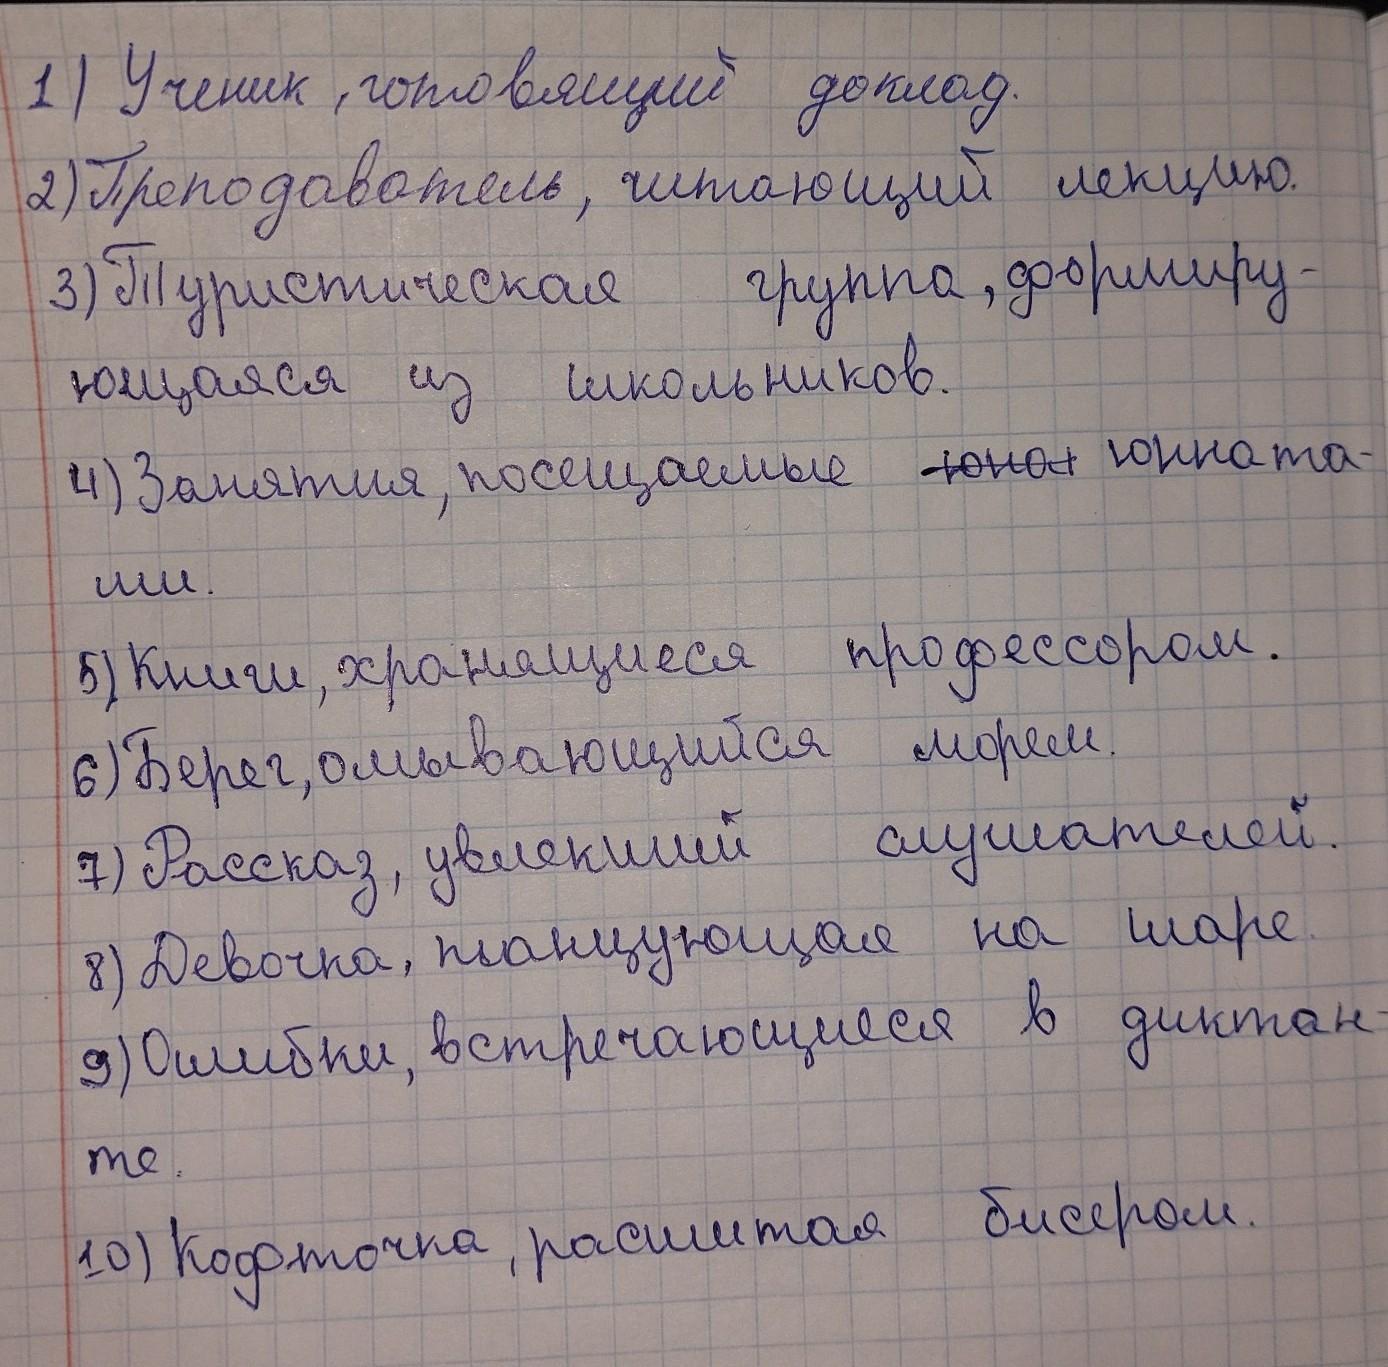 1) Ученик, готовящий доклад.
2) Преподаватель, читающий лекцию.
3) Туристическая группа, формиру-
ющаяся из школьников.
4) Занятия, посещаемые юнат юнната-
ми.
5) Книги, хранящиеся профессором.
6) Берег, омывающийся морем.
7) Рассказ, увлекший слушателей.
8) Девочка, танцующая на шаре.
9) Ошибки, встречающиеся в диктан-
те.
10) Кофточка, расшитая бисером.